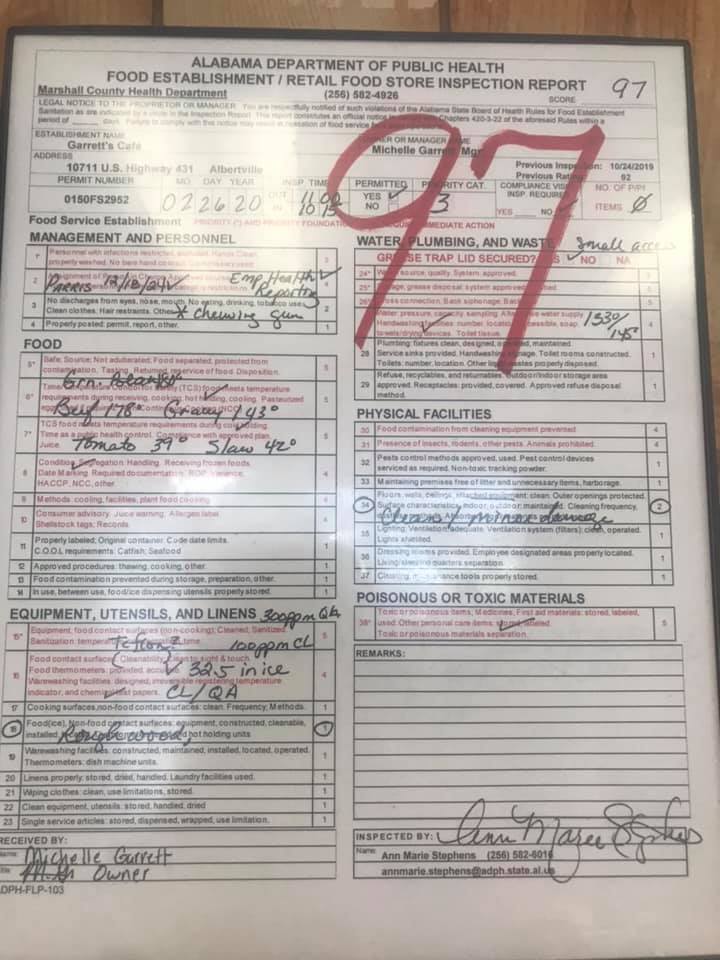 ALABAMA DEPARTMENT OF PUBLIC HEALTH
FOOD ESTABLISHMENT / RETAIL FOOD STORE INSPECTION REPORT
Marshall County Health Department (256) 582-4926
SCORE 97
97
LEGAL NOTICE TO THE PROPRIETOR OR MANAGER. You are respectfully notified of such violations of the Alabama State Board of Health Rules for Food Establishment
Sanitation as are indicated in the Inspection Report. This report constitutes an official notice Chapters 420-3-22 of the aforesaid Rules within a
period of ____ days. Failure to comply with this notice may result in cessation of food service
ESTABLISHMENT NAME
Garrett's Cafe
OR MANAGER NAME
Michelle Garrett Mgr
ADDRESS
10711 U.S. Highway 431 Albertville
Previous Inspection: 10/24/2019
Previous Rating: 92
PERMIT NUMBER
0150FS2952
MO. DAY YEAR
022620
INSP. TIME
OUT 11:00
IN 10:15
PERMITTED
YES ✓
NO
PRIORITY CAT.
3
COMPLIANCE VISIT
INSP. REQUIRED
YES NO
NO. OF P/Pf
ITEMS Ø
Food Service Establishment PRIORITY (*) AND PRIORITY FOUNDATION IMMEDIATE ACTION
MANAGEMENT AND PERSONNEL
1* Personnel with infections restricted, excluded. Hands Clean,
properly washed. No bare hand contact.
2 Assignment of
Parris 12/18/24 ✓ Emp Health ✓ Reporting
3 No discharges from eyes, nose, mouth. No eating, drinking, tobacco use.
Clean clothes. Hair restraints. Other * chewing gum 2
4 Properly posted: permit, report, other. 1
FOOD
5* Safe; Source; Not adulterated; Food separated, protected from
contamination, Tasting, Returned, reservice of food. Disposition. 5
6* Time/ (TCS) food meets temperature
requirements during receiving, cooking, hot holding, cooling, Pasteurized 5
Beef 178° Gravy 143°
7* TCS food meets temperature requirements during cold holding.
Time as a public health control. Compliance with approved plan.
Juice. 5
Tomato 39° Slaw 42°
8 Condition, Segregation. Handling. Receiving frozen foods.
Date Marking. Required documentation: ROP, Variance,
HACCP, NCC, other. 4
9 Methods: cooling, facilities, plant food cooking 4
10 Consumer advisory. Juice warning. Allergen label.
Shellstock tags; Records 4
11 Properly labeled; Original container. Code date limits.
C.O.O.L requirements: Catfish; Seafood 1
12 Approved procedures: thawing, cooking, other. 1
13 Food contamination prevented during storage, preparation, other. 1
14 In use, between use, food/ice dispensing utensils properly stored 1
EQUIPMENT, UTENSILS, AND LINENS 300ppm QA
15* Equipment, food contact surfaces (non-cooking); Cleaned, Sanitized.
Sanitization: temperature, time. 5
100ppm CL
16 Food contact surfaces (Cleanability) clean to sight & touch.
Food thermometers: provided, accurate
Warewashing facilities: designed, irreversible registering temperature
indicator, and chemical test papers. 4
✓ 32.5 in ice
CL/QA
17 Cooking surfaces, non-food contact surfaces: clean. Frequency; Methods. 1
18 Food(ice), Non-food contact surfaces: equipment, constructed, cleanable,
installed, hot holding units 1
Rough wood,
19 Warewashing facilities: constructed, maintained, installed, located, operated.
Thermometers: dish machine units. 1
20 Linens properly: stored, dried, handled. Laundry facilities used. 1
21 Wiping clothes: clean, use limitations, stored. 1
22 Clean equipment, utensils: stored, handled, dried 1
23 Single service articles: stored, dispensed, wrapped, use limitation. 1
RECEIVED BY:
Name: Michelle Garrett
Owner
ADPH-FLP-103
WATER, PLUMBING, AND WASTE Small access
GREASE TRAP LID SECURED? ✓ NO NA
24* Water: source, quality. System: approved.
25* Sewage, grease disposal: system approved
26* Cross connection, Back siphonage, Back
27 Water: pressure, capacity, sampling. Alternative water supply
Handwashing number, located, accessible, soap,
towels/drying devices. Toilet tissue. 4
133°/145°
28 Plumbing: fixtures clean, designed, maintained.
Service sinks provided. Handwashing signage. Toilet rooms constructed.
Toilets: number, location. Other liquid wastes properly disposed. 1
29 Refuse, recyclables, and returnables. outdoor/indoor storage area
approved. Receptacles: provided, covered. Approved refuse disposal
method. 1
PHYSICAL FACILITIES
30 Food contamination from cleaning equipment prevented 4
31 Presence of insects, rodents, other pests. Animals prohibited. 4
32 Pests control methods approved, used. Pest control devices
serviced as required. Non-toxic tracking powder. 1
33 Maintaining premises free of litter and unnecessary items, harborage. 1
34 Floors, walls, ceilings, attached equipment: clean. Outer openings protected.
Surface characteristics, indoor, outdoor; maintained. Cleaning frequency, 2
Cleaning minor damage
35 Lighting; Ventilation adequate. Ventilation system (filters): clean, operated.
Lights shielded. 1
36 Dressing rooms provided. Employee designated areas properly located.
Living/sleeping quarters separation. 1
37 Cleaning, maintenance tools properly stored. 1
POISONOUS OR TOXIC MATERIALS
38* Toxic or poisonous items; Medicines, First aid materials: stored, labeled,
used. Other personal care items: stored, labeled.
Toxic or poisonous materials separation. 5
REMARKS:
INSPECTED BY: Ann Marie Stephens
Name: Ann Marie Stephens (256) 582-6016
annmarie.stephens@adph.state.al.us